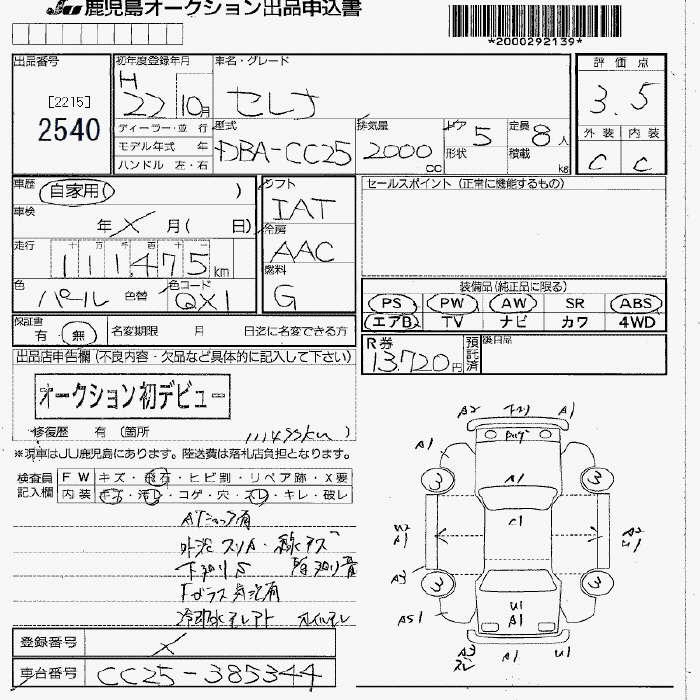 JU 鹿児島オークション出品申込書
*2000292139*
出品番号
[2215]
2540
初年度登録年月
H
22 10月
車名・グレード
セレナ
評価点
3.5
ディーラー・並 行
モデル年式 年
ハンドル 左・右
型式
DBA-CC25
排気量
2000
CC
ドア 5
形状
定員 8人
積載 kg
外装 内装
C C
車歴 自家用( )
車検 年 X 月( 日)
走行
十 万 千 百 十 一
111,475 km
色 パール 色替
色コード QX1
シフト
IAT
冷房
AAC
燃料
G
セールスポイント (正常に機能するもの)
装備品(純正品に限る)
PS PW AW SR ABS
エアB TV ナビ カワ 4WD
保証書
有 無
名変期限 月 日迄に名変できる方
R券
13,720円
預託済
後日品
出品店申告欄 (不良内容・欠品など具体的に記入して下さい)
オークション初デビュー
修復歴 有 (箇所 )
111495km
※現車はJU鹿児島にあります。陸送費は落札店負担となります。
検査員記入欄
FW キズ・飛石・ヒビ割・リペア跡・X要
内装 キズ・汚レ・コゲ・穴・スレ・キレ・破レ
ATショック有
下廻りS
冷却水モレアト オイルモレ
登録番号 X
車台番号 CC25-385344
A2 下スリ A1
A1
3 A1 3
C1
U2
A1
A2
U1
A3
3 3
AS1
U1
A1
A3
スレ
A1 U1